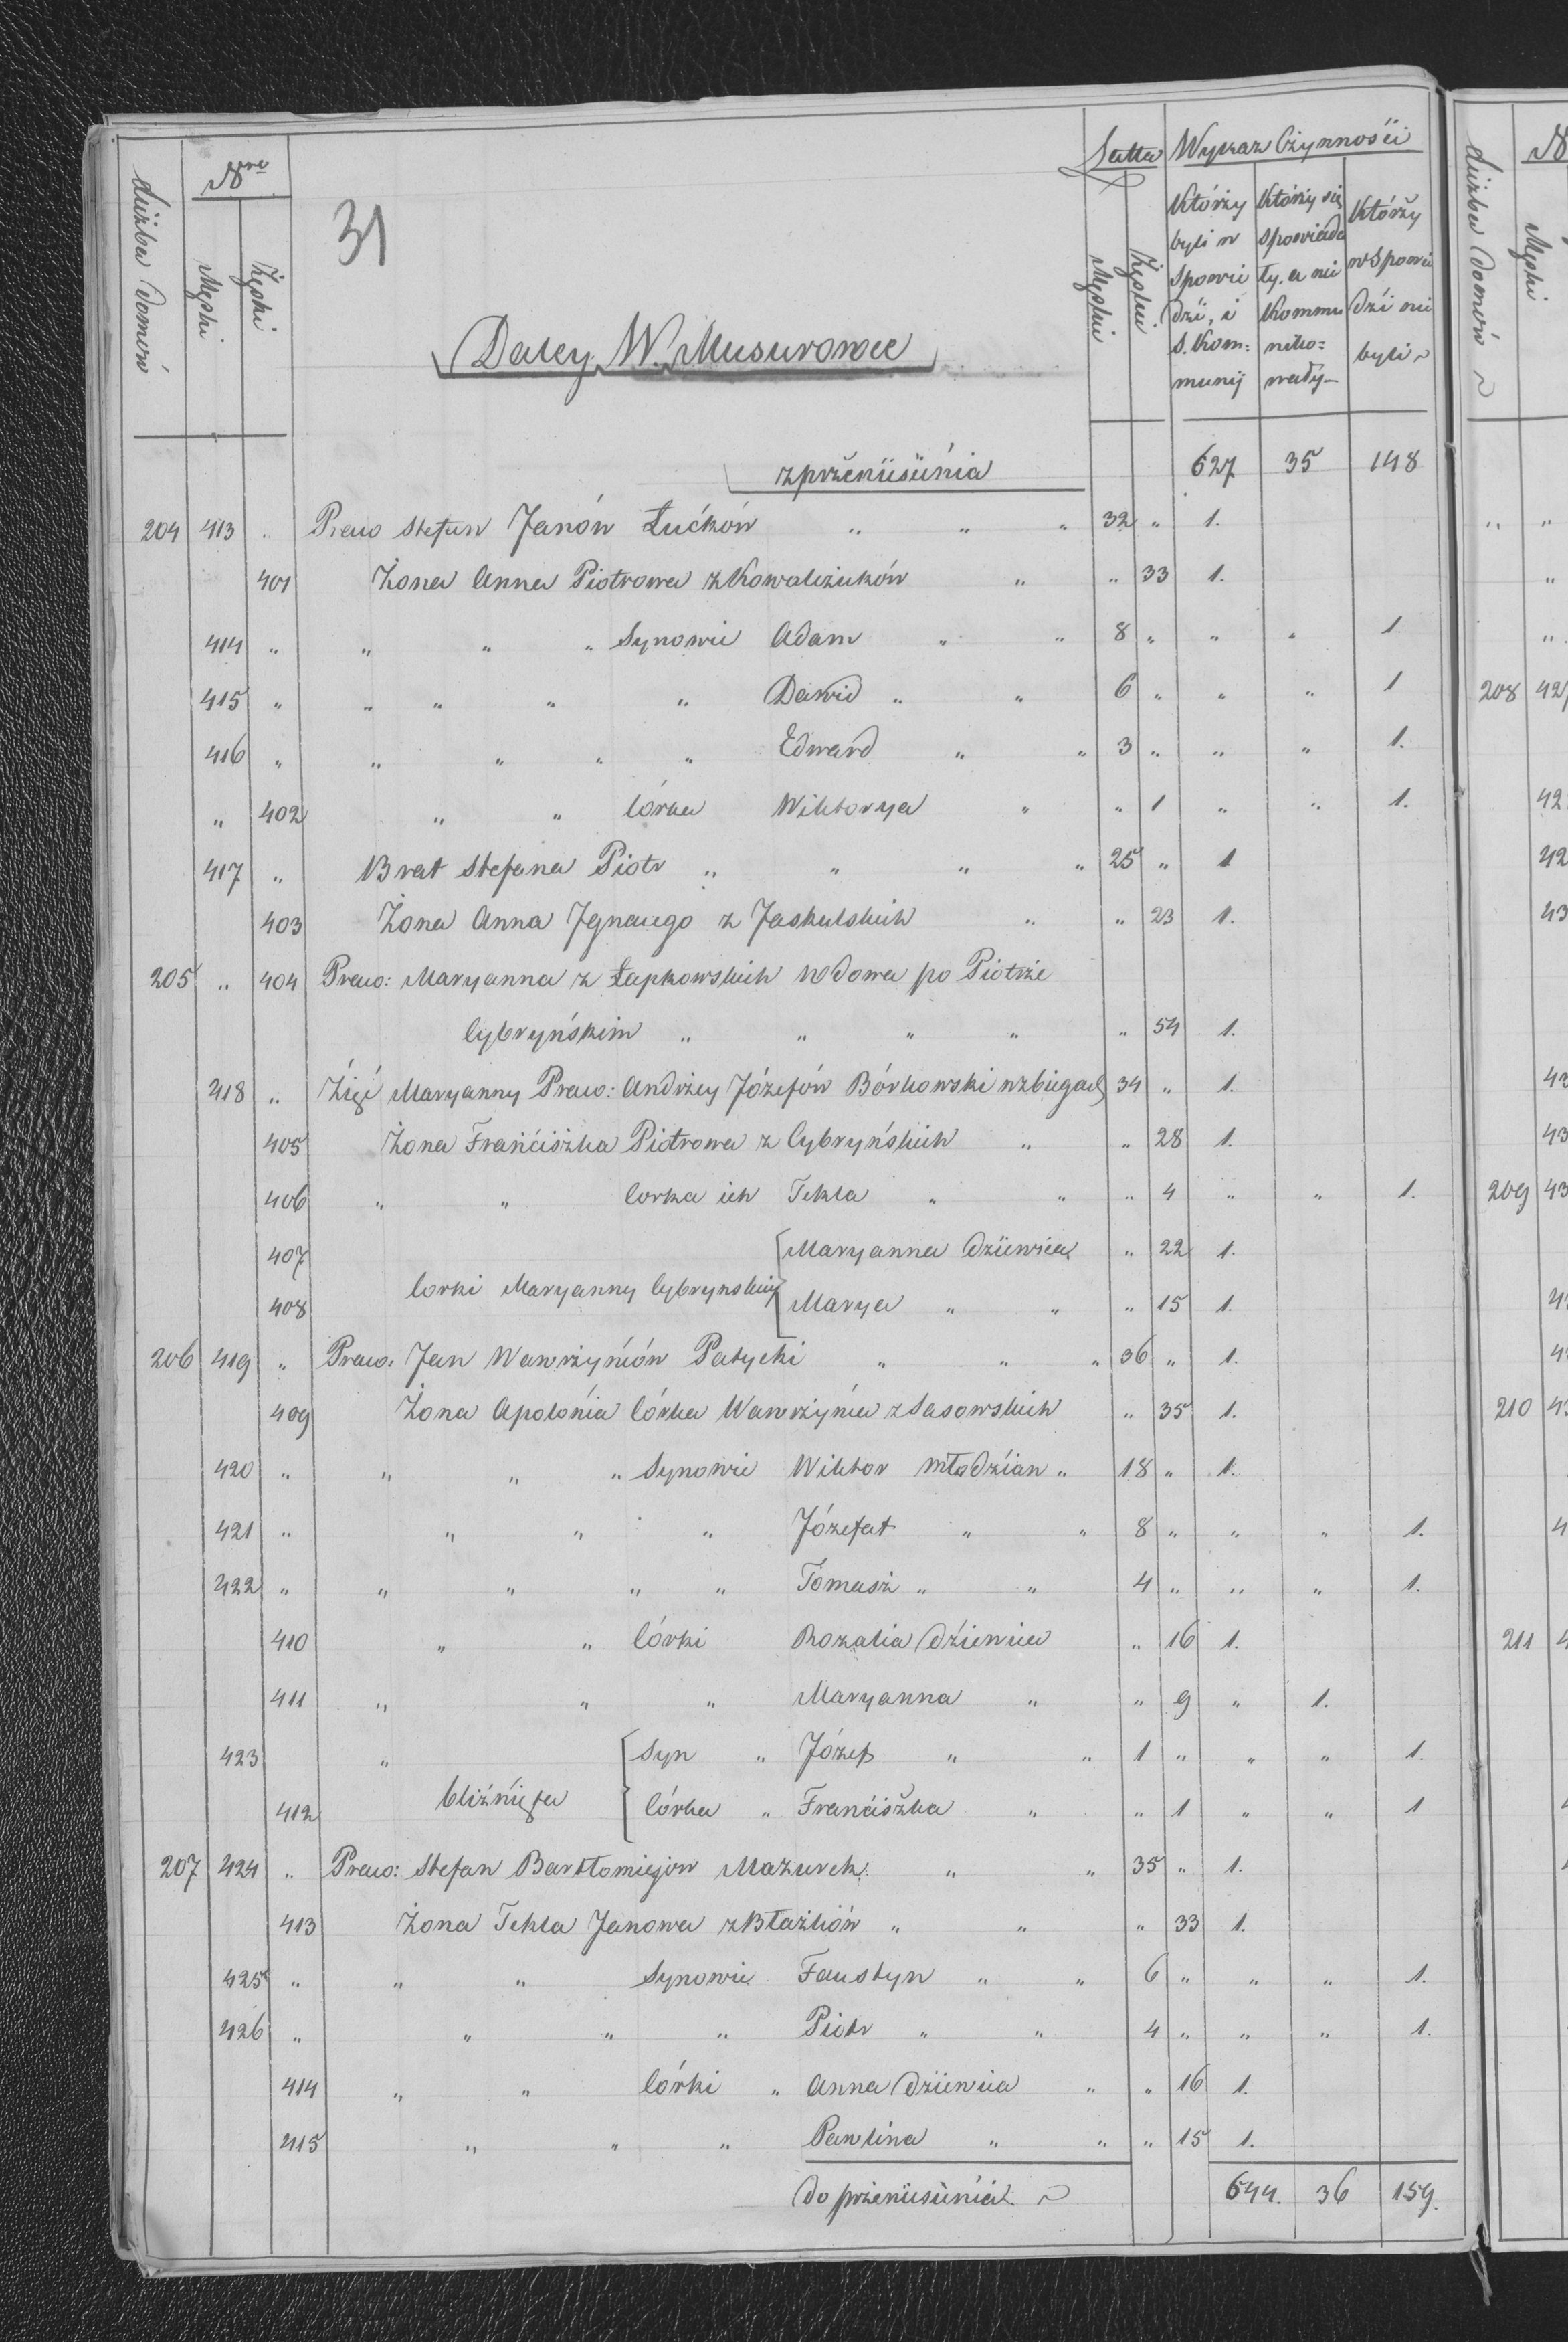 31
Liczba Domów
Nro
Męski
Żęski
Latta
Męskie
Żęskie
Wykaz Czynnośći
Którzy byli w spowiedźi, i S. Kommunij
Którzy się spowiadały. a nie Kommunikowały
Którzy w Spowiedźi nie byli
Daley W. Musurowce
zprzeniesienia 627 35 148
204 413 „ Praco Stefan Janów Łućków „ „ „ 32 „ 1.
401 Żona Anna Piotrowa z Kowalczuków „ „ 33 1.
414 „ „ „ „ Synowie Adam „ „ 8 „ „ „ 1
415 „ „ „ „ „ Dawid „ „ 6 „ „ „ 1
416 „ „ „ „ „ Edward „ „ 3 „ „ „ 1.
„ 402 „ „ Córka Wiktorya „ „ 1 „ „ 1.
417 „ Brat Stefana Piotr „ „ „ „ 25 „ 1
403 Żona Anna Jgnacego z Jaskulskich „ „ 23 1.
205 „ 404 Praco: Maryanna z Łapkowskich wdowa po Piotrże
Cybryńskim „ „ „ „ „ 54 1.
418 „ Zięć Maryanny Praco: Andrżey Józefów Bórkowski wzbiegach 34 „ 1.
405 Żona Franćiszka Piotrowa z Cybryńskich „ „ 28 1.
406 „ „ Corka ich Tekla „ „ „ 4 „ „ 1.
407 Maryanna dziewica „ 22 1.
Corki Maryanny Cybrynskiej
408 Marya „ „ „ 15 1.
206 419 „ Praco: Jan Wawrżyńców Patycki „ „ „ 36 „ 1.
409 Żona Apolónia Córka Wawrżyńca z Sasowskich „ 35 1.
420 „ „ „ „ Synowie Wiktor młodźian „ 18 „ 1.
421 „ „ „ „ Józefat „ „ 8 „ „ „ 1.
422 „ „ „ „ „ Tomasz „ „ 4 „ „ „ 1.
410 „ „ Córki Rozalia dźiewica „ 16 1.
411 „ „ „ Maryanna „ „ 9 „ 1.
423 „ Syn „ Józef „ „ 1 „ „ „ 1.
bliźnięta
412 Córka „ Franćiszka „ „ 1 „ „ 1
207 424 „ Praco: Stefan Bartłomiejow Mazurek „ „ 35 „ 1.
413 Żona Tekla Janowa z Błażków „ „ „ 33 1.
425 „ „ „ Synowie Faustyn „ „ 6 „ „ „ 1.
426 „ „ „ „ Piotr „ „ 4 „ „ „ 1.
414 „ „ Córki „ Anna dziewica „ „ 16 1.
415 „ „ „ Pawlina „ „ „ 15 1.
do przeniesienia 644. 36 159.
Liczba Domów
Męski
208
209
210
211